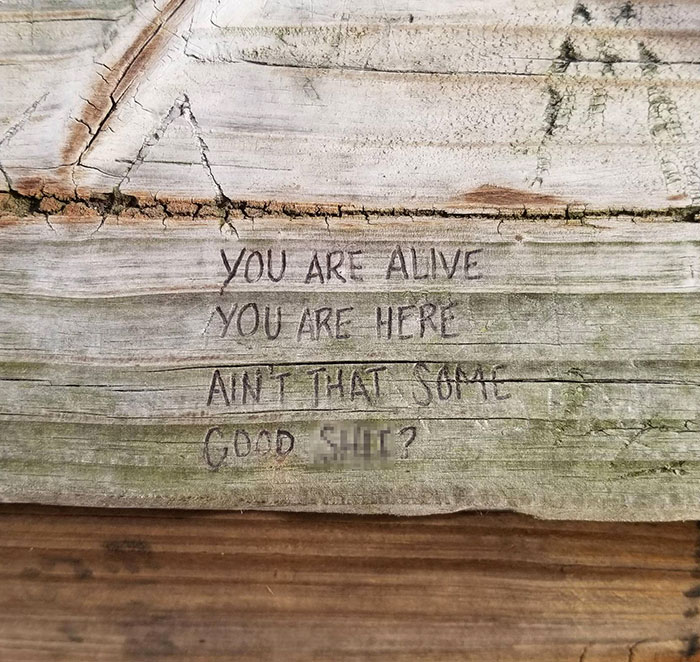 YOU ARE ALIVE
YOU ARE HERE
AIN'T THAT SOME
GOOD ?